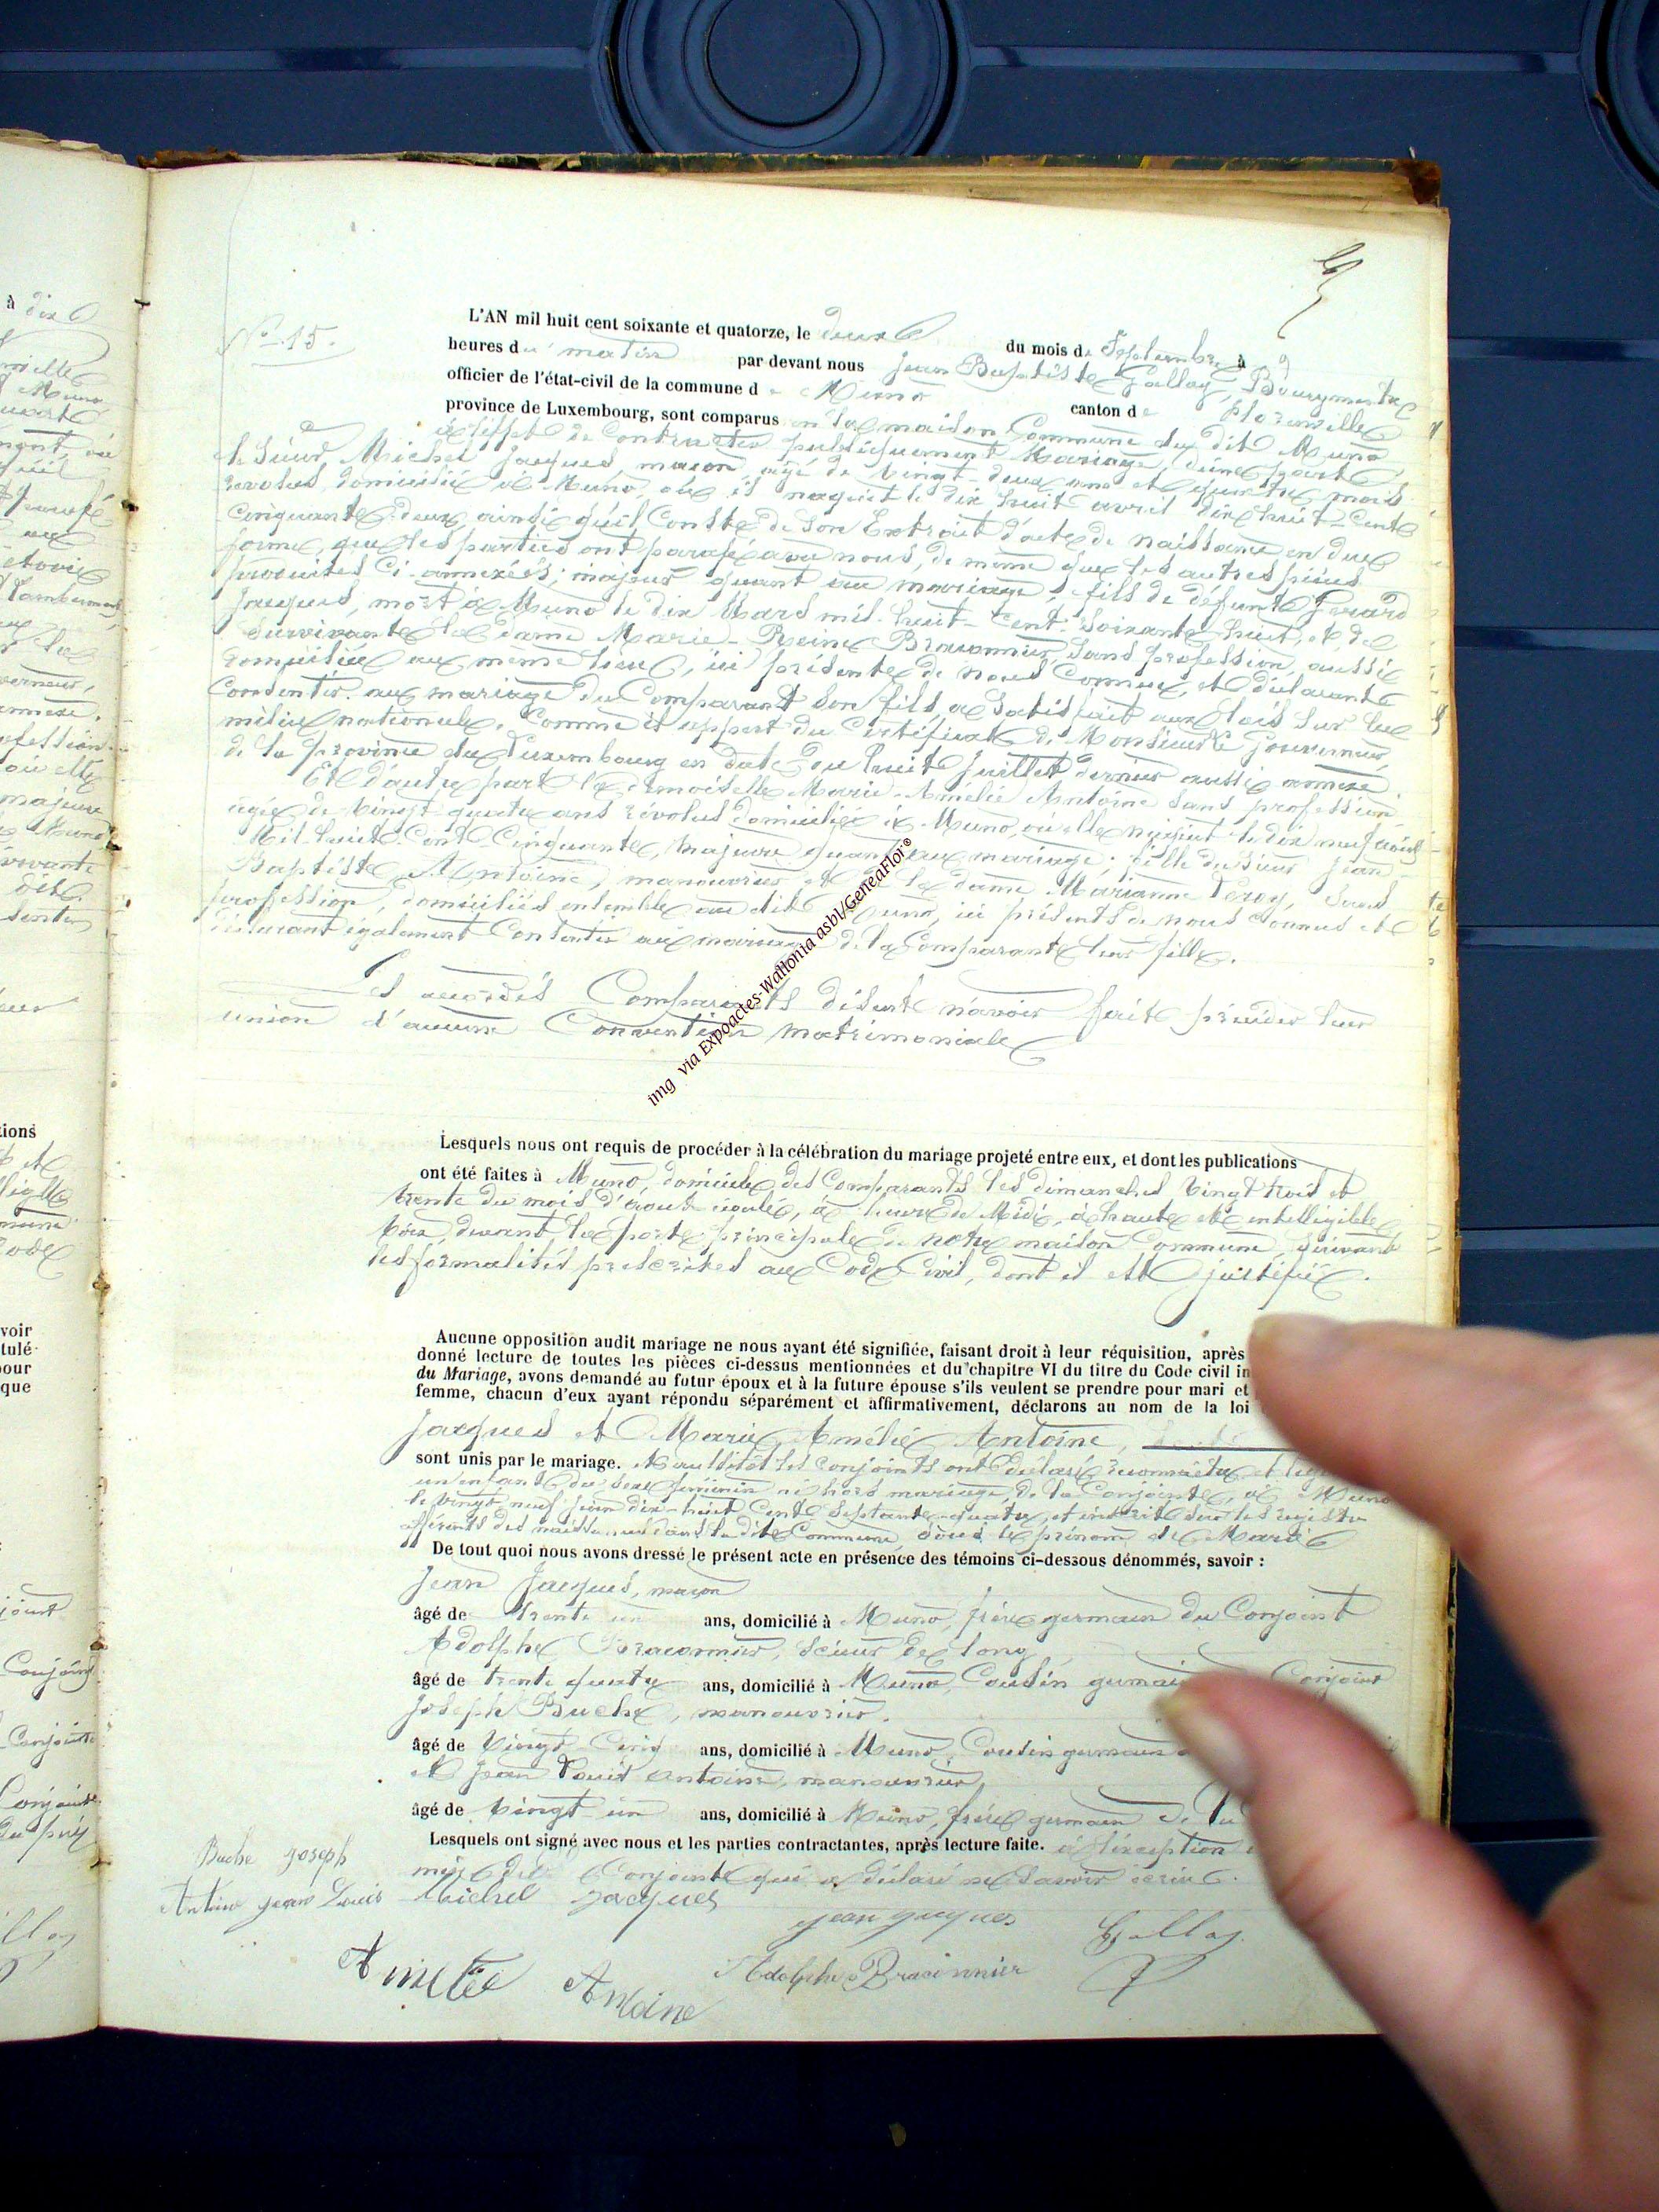 N° 15.
L'AN mil huit cent soixante et quatorze, le deux du mois de Septembre à 9
heures du matin par devant nous Jean Baptiste Gallay, Bourgmestre
officier de l'état-civil de la commune de Muno canton de Florenville
province de Luxembourg, sont comparus en la maison Commune du dit Muno
à l'effet de Contracter publiquement Mariage, d'une part,
le Sieur Michel Jacques, maçon, agé de vingt deux ans et quatre mois
révolus, domicilié à Muno, où il naquit le dix huit avril dix huit-cent
cinquante-deux, ainsi qu'il Conste de son Extrait d'acte de naissance en due
forme, que les parties ont parafé avec nous, de même que les autres pièces
produites ci-annexées; majeur quant au mariage; fils de défunt Gérard
Jacques, mort à Muno le dix Mars mil-huit-cent-soixante huit, et de
survivante la Dame Marie-Reine Braconnier, sans profession, aussi
domiciliée au même lieu, ici présente de nous Connue, et déclarante
Consentir au mariage du Comparant son fils, a satisfait aux lois sur la
milice nationale, Comme il appert du Certificat de Monsieur le Gouverneur,
de la province du Luxembourg en date du huit Juillet dernier aussi annexé.
Et d'autre part la demoiselle Marie-Amélie Antoine sans profession,
agée de vingt quatre ans révolus domiciliée à Muno, où elle naquit le dix neuf août
Mil-huit-Cent-Cinquante, majeure quant au mariage; fille du sieur Jean-
Baptiste Antoine, manouvrier et de la dame Marianne Leroy, sans
profession, domiciliés ensemble au dit Muno, ici présents de nous Connus et
déclarant également Consentir au mariage de la Comparante leur fille.
Les accordés Comparants disent n'avoir fait précéder leur
union d'aucune Convention matrimoniale
img via Expoactes-Wallonia asbl/GeneaFlor©
Lesquels nous ont requis de procéder à la célébration du mariage projeté entre eux, et dont les publications
ont été faites à Muno, domicile des Comparants les dimanches vingt trois et
trente du mois d'août écoulé, à heure de Midi, à haute et intelligible
voix, devant la porte principale de notre maison Commune, suivant
les formalités prescrites au Code Civil, dont il est justifié.
Aucune opposition audit mariage ne nous ayant été signifiée, faisant droit à leur réquisition, après
donné lecture de toutes les pièces ci-dessus mentionnées et du chapitre VI du titre du Code civil in
du Mariage, avons demandé au futur époux et à la future épouse s'ils veulent se prendre pour mari et
femme, chacun d'eux ayant répondu séparément et affirmativement, déclarons au nom de la loi
Jacques et Marie Amélie Antoine,
sont unis par le mariage. Et aussitôt les conjoints ont déclaré reconnaître et
un enfant du sexe féminin né hors mariage, de la Conjointe, à Muno
le vingt neuf juin dix-huit Cent Septante-quatre, et inscrite sur les registres
afférents des naissances dans la dite Commune, sous le prénom de Marie
De tout quoi nous avons dressé le présent acte en présence des témoins ci-dessous dénommés, savoir :
Jean Jacques, maçon
âgé de trente un ans, domicilié à Muno, frère germain du Conjoint
Adolphe Braconnier, scieur de long,
âgé de trente quatre ans, domicilié à Muno, Cousin germain Conjoint
Joseph Buche, manouvrier.
âgé de vingt Cinq ans, domicilié à Muno, Cousin germain
et Jean Louis Antoine, manouvrier,
âgé de vingt un ans, domicilié à Muno, frère germain de
Lesquels ont signé avec nous et les parties contractantes, après lecture faite. à l'exception
mère du Conjoint qui a déclaré ne savoir écrire.
Buche Joseph
Antoine Jean Louis Michel Jacques
Jean Jacques Gallay
Amélie Antoine Adolphe Braconnier